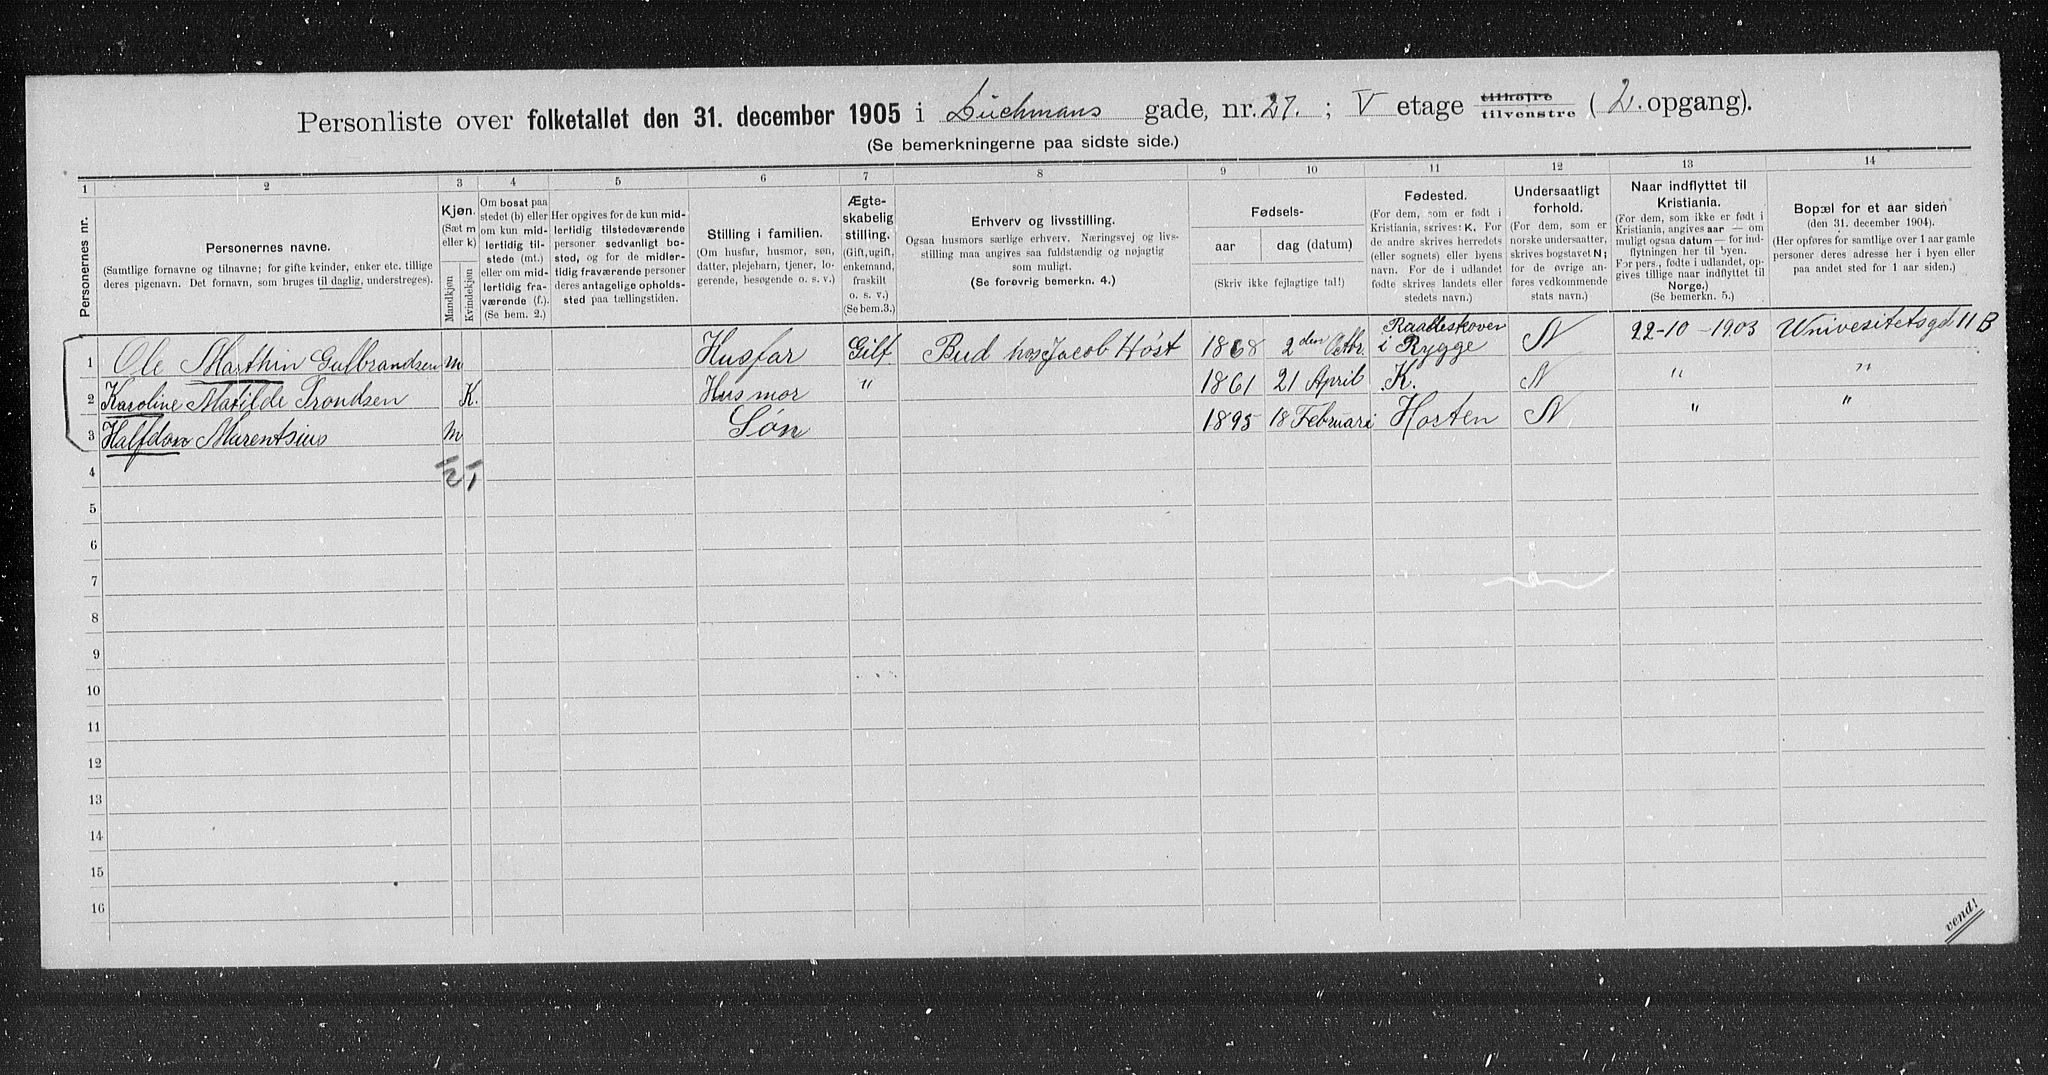 Personliste over folketallet den 31. december 1905 i Duchmans gade, nr. 27. ; V etage tilhøjre tilvenstre ( 2. opgang).
(Se bemerkningerne paa sidste side.)
1 2 3 4 5 6 7 8 9 10 11 12 13 14
Personernes nr.
Personernes navne.
(Samtlige fornavne og tilnavne; for gifte kvinder, enker etc. tillige
deres pigenavn. Det fornavn, som bruges til daglig, understreges).
Kjøn.
(Sæt m
eller k)
Mandkjøn
Kvindekjøn
Om bosat paa
stedet (b) eller
om kun mid-
lertidig til-
stede (mt.)
eller om mid-
lertidig fra-
værende (f.).
(Se bem. 2.)
Her opgives for de kun mid-
lertidig tilstedeværende
personer sedvanligt bo-
sted, og for de midler-
tidig fraværende personer
deres antagelige opholds-
sted paa tællingstiden.
Stilling i familien.
(Om husfar, husmor, søn,
datter, plejebarn, tjener, lo-
gerende, besøgende o. s. v.)
Ægte-
skabelig
stilling.
(Gift, ugift,
enkemand,
fraskilt
o. s. v.)
(Se bem.3.)
Erhverv og livsstilling.
Ogsaa husmors særlige erhverv. Næringsvej og livs-
stilling maa angives saa fuldstændig og nøjagtig
som muligt.
(Se forøvrig bemerkn. 4.)
Fødsels-
aar dag (datum)
(Skriv ikke fejlagtige tal!)
Fødested.
(For dem, som er født i
Kristiania, skrives: K. For
de andre skrives herredets
(eller sognets) eller byens
navn. For de i udlandet
fødte skrives landets eller
stedets navn.)
Undersaatligt
forhold.
(For dem, som er
norske undersaatter,
skrives bogstavet N;
for de øvrige an-
føres vedkommende
stats navn.)
Naar indflyttet til
Kristiania.
(For dem, som ikke er født i
Kristiania, angives aar — om
muligt ogsaa datum — for ind-
flytningen her til byen.
For pers., født i udlandet, op-
gives tillige naar indflyttet til
Norge.)
(Se bemerkn. 5.)
Bopæl for et aar siden
(den 31. december 1904).
(Her opføres for samtlige over 1 aar gamle
personer deres adresse her i byen eller
paa andet sted for 1 aar siden.)
1 Ole Marthin Gulbrandsen m Husfar Gift Bud hos Jacob Høst 1868 2den Octbr. Raadeskoven i Rygge N 22-10-1903 Univesitetsgd 11 B
2 Karoline Matilde Trondsen K. Husmor " 1861 21 April K. N " "
3 Halfdan Marentsius m Søn 1895 18 Februari Horten N " "
4 2 1
5
6
7
8
9
10
11
12
13
14
15
16
vend!